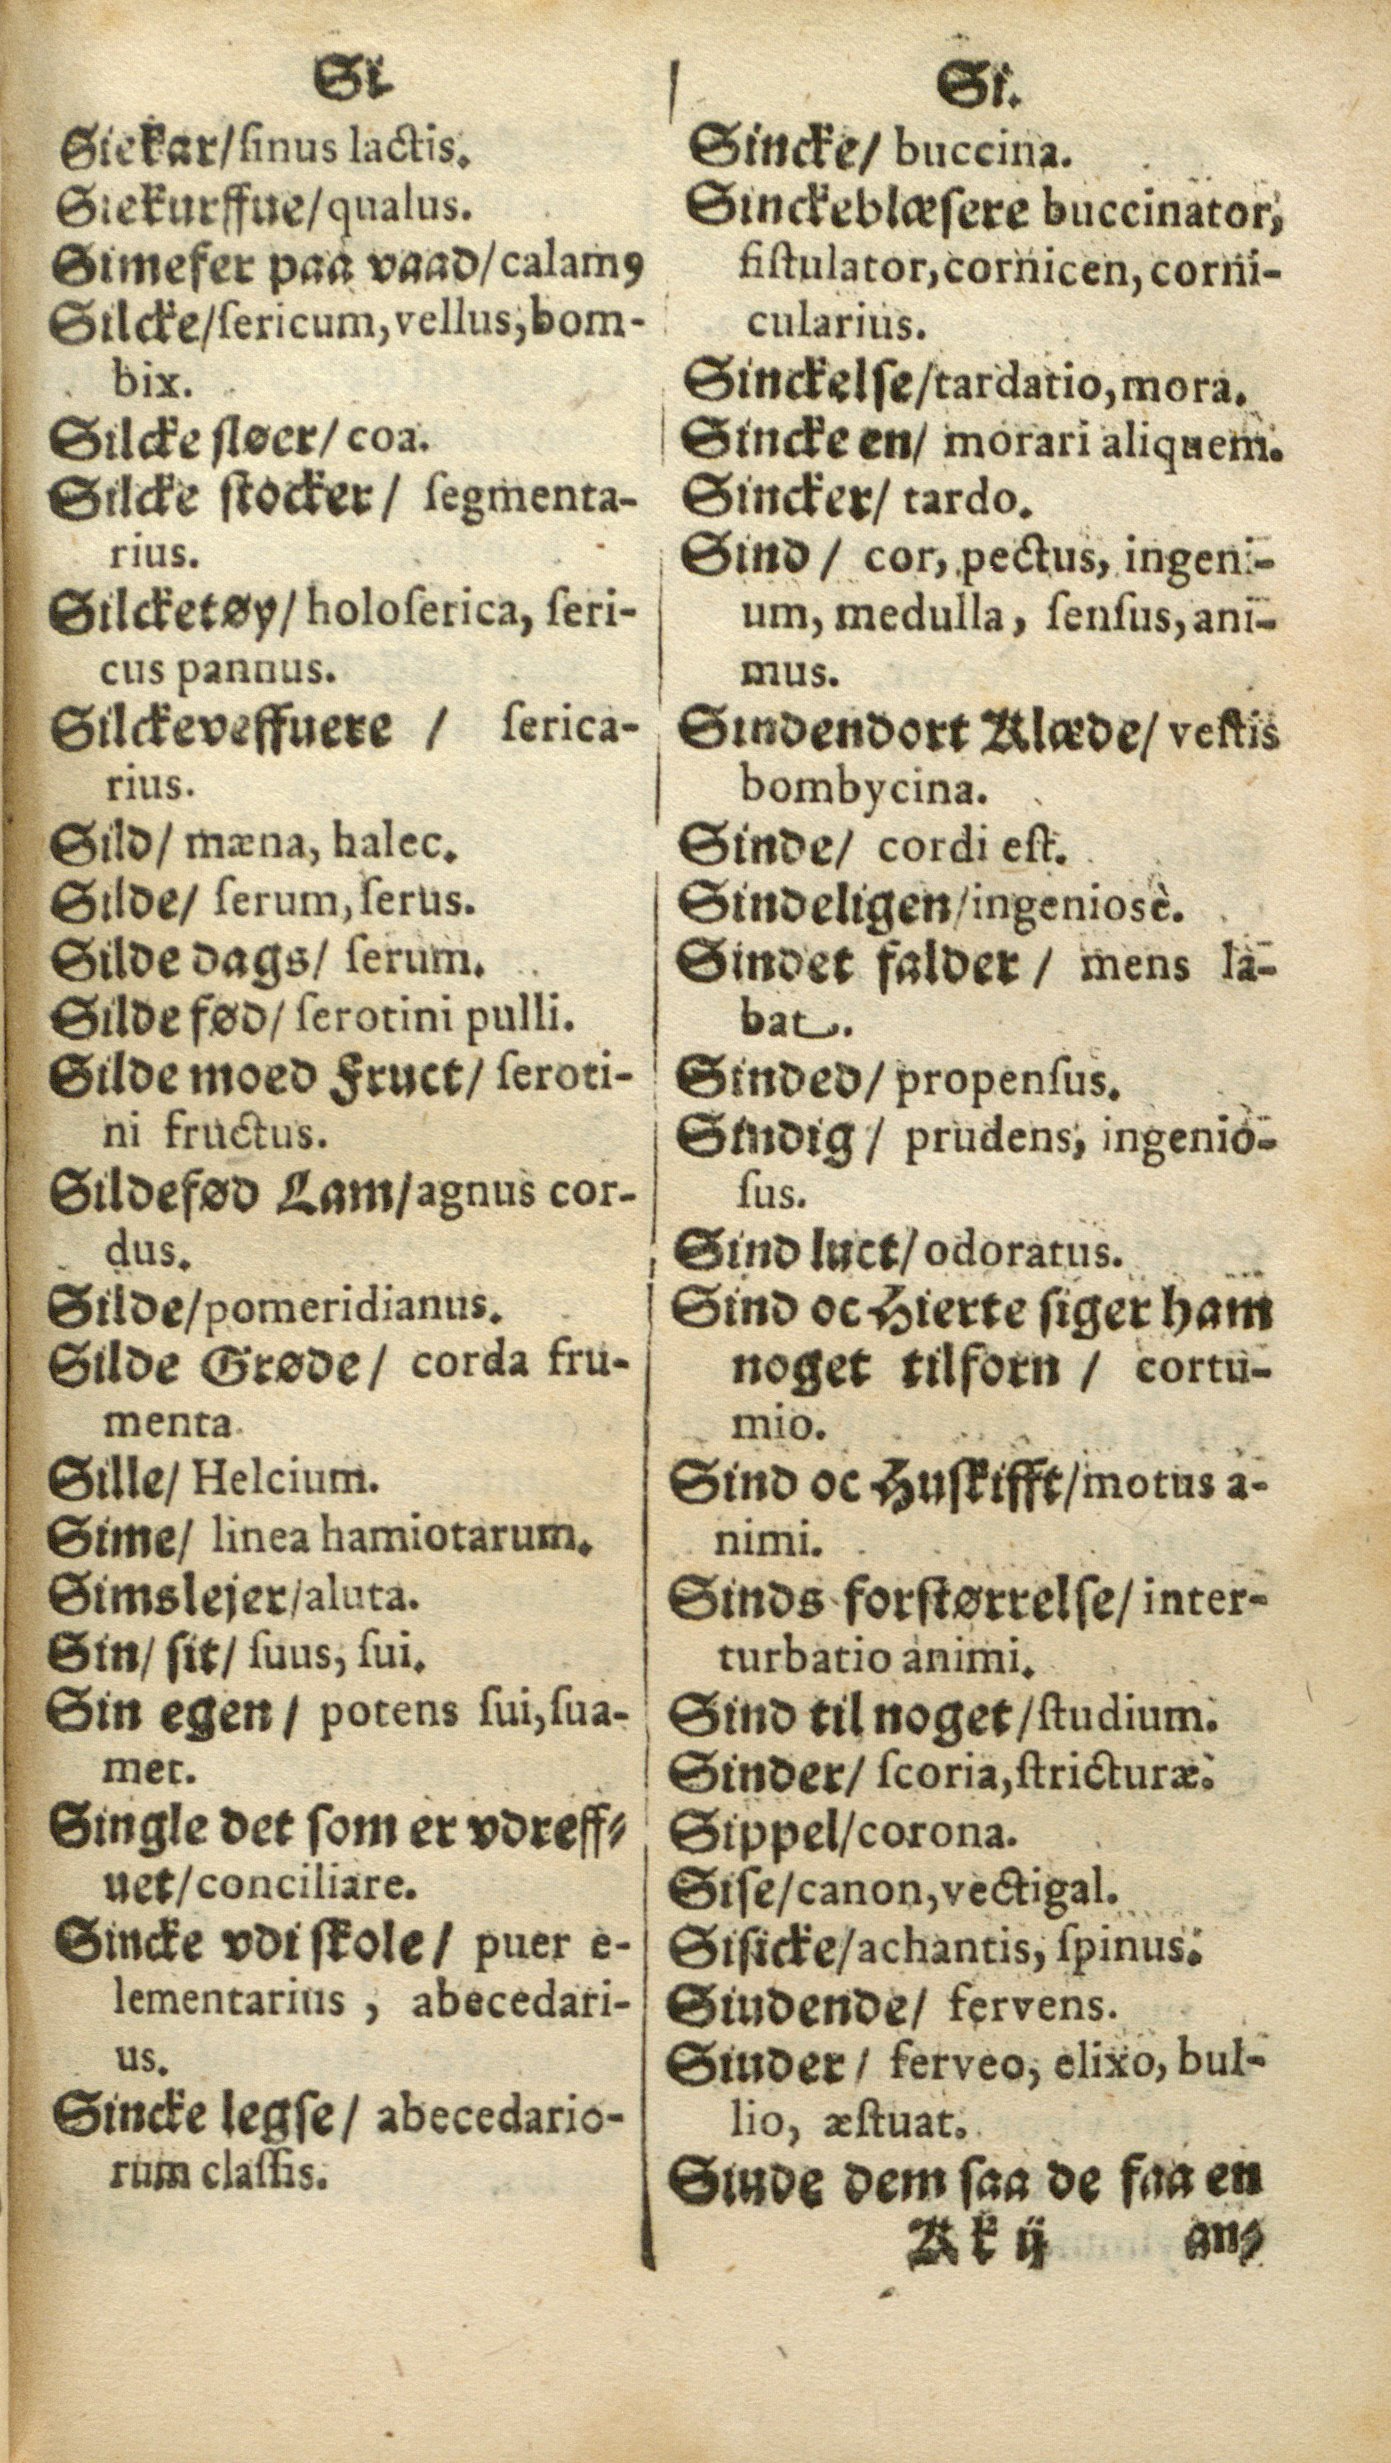 Si
Siekar/ſinus lactis.
Siekurffue/qualus.
Simefer paa vaad/calamꝰ
Silcke/ſericum, vellus, bom-
bix.
Silcke ſløer/ coa.
Silcke ſtocker/ ſegmenta-
rius.
Silcketøy/ holoſerica, ſeri-
cus pannus.
Silckeveffuere / ſerica-
rius.
Sild/ mæna, halec.
Silde/ ſerum, ſerus.
Silde dags/ ſerum.
Silde fød/ ſerotini pulli.
Silde moed Fruct/ ſeroti-
ni fructus.
Sildefød Lam/agnus cor-
dus.
Silde/pomeridianus.
Silde Grøde/ corda fru-
menta
Sille/ Helcium.
Sime/ linea hamiotarum.
Simslejer/aluta.
Sin/ ſit/ ſuus, ſui.
Sin egen / potens ſui, ſua-
met.
Single det ſom er vdreff-
uet/conciliare.
Sincke vdi ſkole/ puer e-
lementarius , abecedari-
us.
Sincke legſe/ abecedario-
rum claſſis.
Si.
Sincke/ buccina.
Sinckeblæſere buccinator,
fiſtulator, cornicen, corni-
cularius.
Sinckelſe/tardatio, mora.
Sincke en/ morari aliquem.
Sincker/ tardo.
Sind / cor, pectus, ingeni-
um, medulla, ſenſus, ani-
mus.
Sindendort Klæde/ veſtis
bombycina.
Sinde/ cordi eſt.
Sindeligen/ingeniosè.
Sindet falder / mens la-
bat.
Sinded/ propenſus.
Sindig / prudens, ingenio-
ſus.
Sind luct/ odoratus.
Sind oc Hierte ſiger ham
noget tilforn / cortu-
mio.
Sind oc Huſkifft/motus a-
nimi.
Sinds forſtørrelſe/ inter-
turbatio animi.
Sind til noget/ſtudium.
Sinder/ ſcoria, ſtricturæ.
Sippel/corona.
Siſe/canon, vectigal.
Siſicke/achantis, ſpinus.
Siudende/ fervens.
Siuder / ferveo, elixo, bul-
lio, æſtuat.
Siude dem ſaa de faa en
Kk ij an-